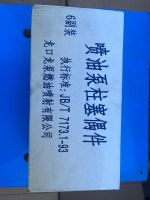 喷油泵柱塞偶件
6副装
执行标准:JB/T 7173.1-93
龙口龙泵燃油喷射有限公司